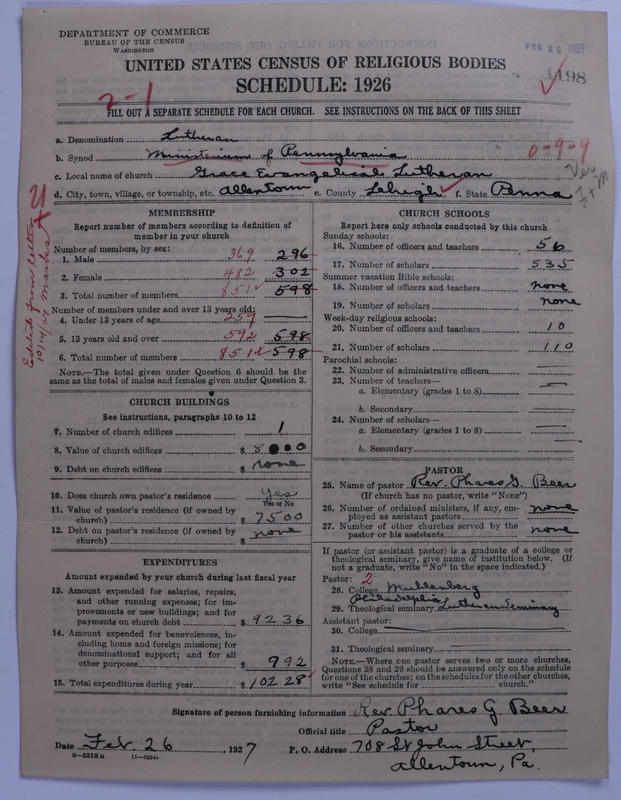 DEPARTMENT OF COMMERCE
BUREAU OF THE CENSUS
WASHINGTON
FEB 28 1927
UNITED STATES CENSUS OF RELIGIOUS BODIES
SCHEDULE: 1926
1198
2-1
FILL OUT A SEPARATE SCHEDULE FOR EACH CHURCH. SEE INSTRUCTIONS ON THE BACK OF THIS SHEET
a. Denomination Lutheran
b. Synod Ministerium of Pennsylvania
0-9-9
c. Local name of church Grace Evangelical Lutheran
Ver
d. City, town, village, or township, etc. Allentown e. County Lehigh f. State Penna
MEMBERSHIP
Report number of members according to definition of
member in your church
Number of members, by sex:
1. Male 369 296
2. Female 482 302
3. Total number of members 851 598
Number of members under and over 13 years old:
4. Under 13 years of age 259
5. 13 years old and over 592 598
6. Total number of members 851 598
NOTE.—The total given under Question 6 should be the
same as the total of males and females given under Question 3.
CHURCH BUILDINGS
See instructions, paragraphs 10 to 12
7. Number of church edifices 1
8. Value of church edifices $
9. Debt on church edifices $ none
10. Does church own pastor's residence yes
Yes or No
11. Value of pastor's residence (if owned by
church) $ 7500
12. Debt on pastor's residence (if owned by
church) $ none
EXPENDITURES
Amount expended by your church during last fiscal year
13. Amount expended for salaries, repairs,
and other running expenses; for im-
provements or new buildings; and for
payments on church debt $ 9236
14. Amount expended for benevolences, in-
cluding home and foreign missions; for
denominational support; and for all
other purposes $ 992
15. Total expenditures during year $ 10228
CHURCH SCHOOLS
Report here only schools conducted by this church
Sunday schools:
16. Number of officers and teachers 56
17. Number of scholars 535
Summer vacation Bible schools:
18. Number of officers and teachers none
19. Number of scholars none
Week-day religious schools:
20. Number of officers and teachers 10
21. Number of scholars 110
Parochial schools:
22. Number of administrative officers
23. Number of teachers—
a. Elementary (grades 1 to 8)
b. Secondary
24. Number of scholars—
a. Elementary (grades 1 to 8)
b. Secondary
PASTOR
25. Name of pastor Rev. Phares G. Beer
(If church has no pastor, write "None")
26. Number of ordained ministers, if any, em-
ployed as assistant pastors none
27. Number of other churches served by the
pastor or his assistants none
If pastor (or assistant pastor) is a graduate of a college or
theological seminary, give name of institution below. (If
not a graduate, write "No" in the space indicated.)
Pastor: 2
28. College Muhlenberg
Philadelphia
29. Theological seminary Lutheran Seminary
Assistant pastor:
30. College
31. Theological seminary
NOTE.—Where one pastor serves two or more churches,
Questions 28 and 29 should be answered only on the schedule
for one of the churches; on the schedules for the other churches,
write "See schedule for church."
Signature of person furnishing information Rev. Phares G. Beer
Official title Pastor
Date Feb. 26 1927 P. O. Address 708 St John Street,
8-5318a 11-9034a Allentown, Pa.